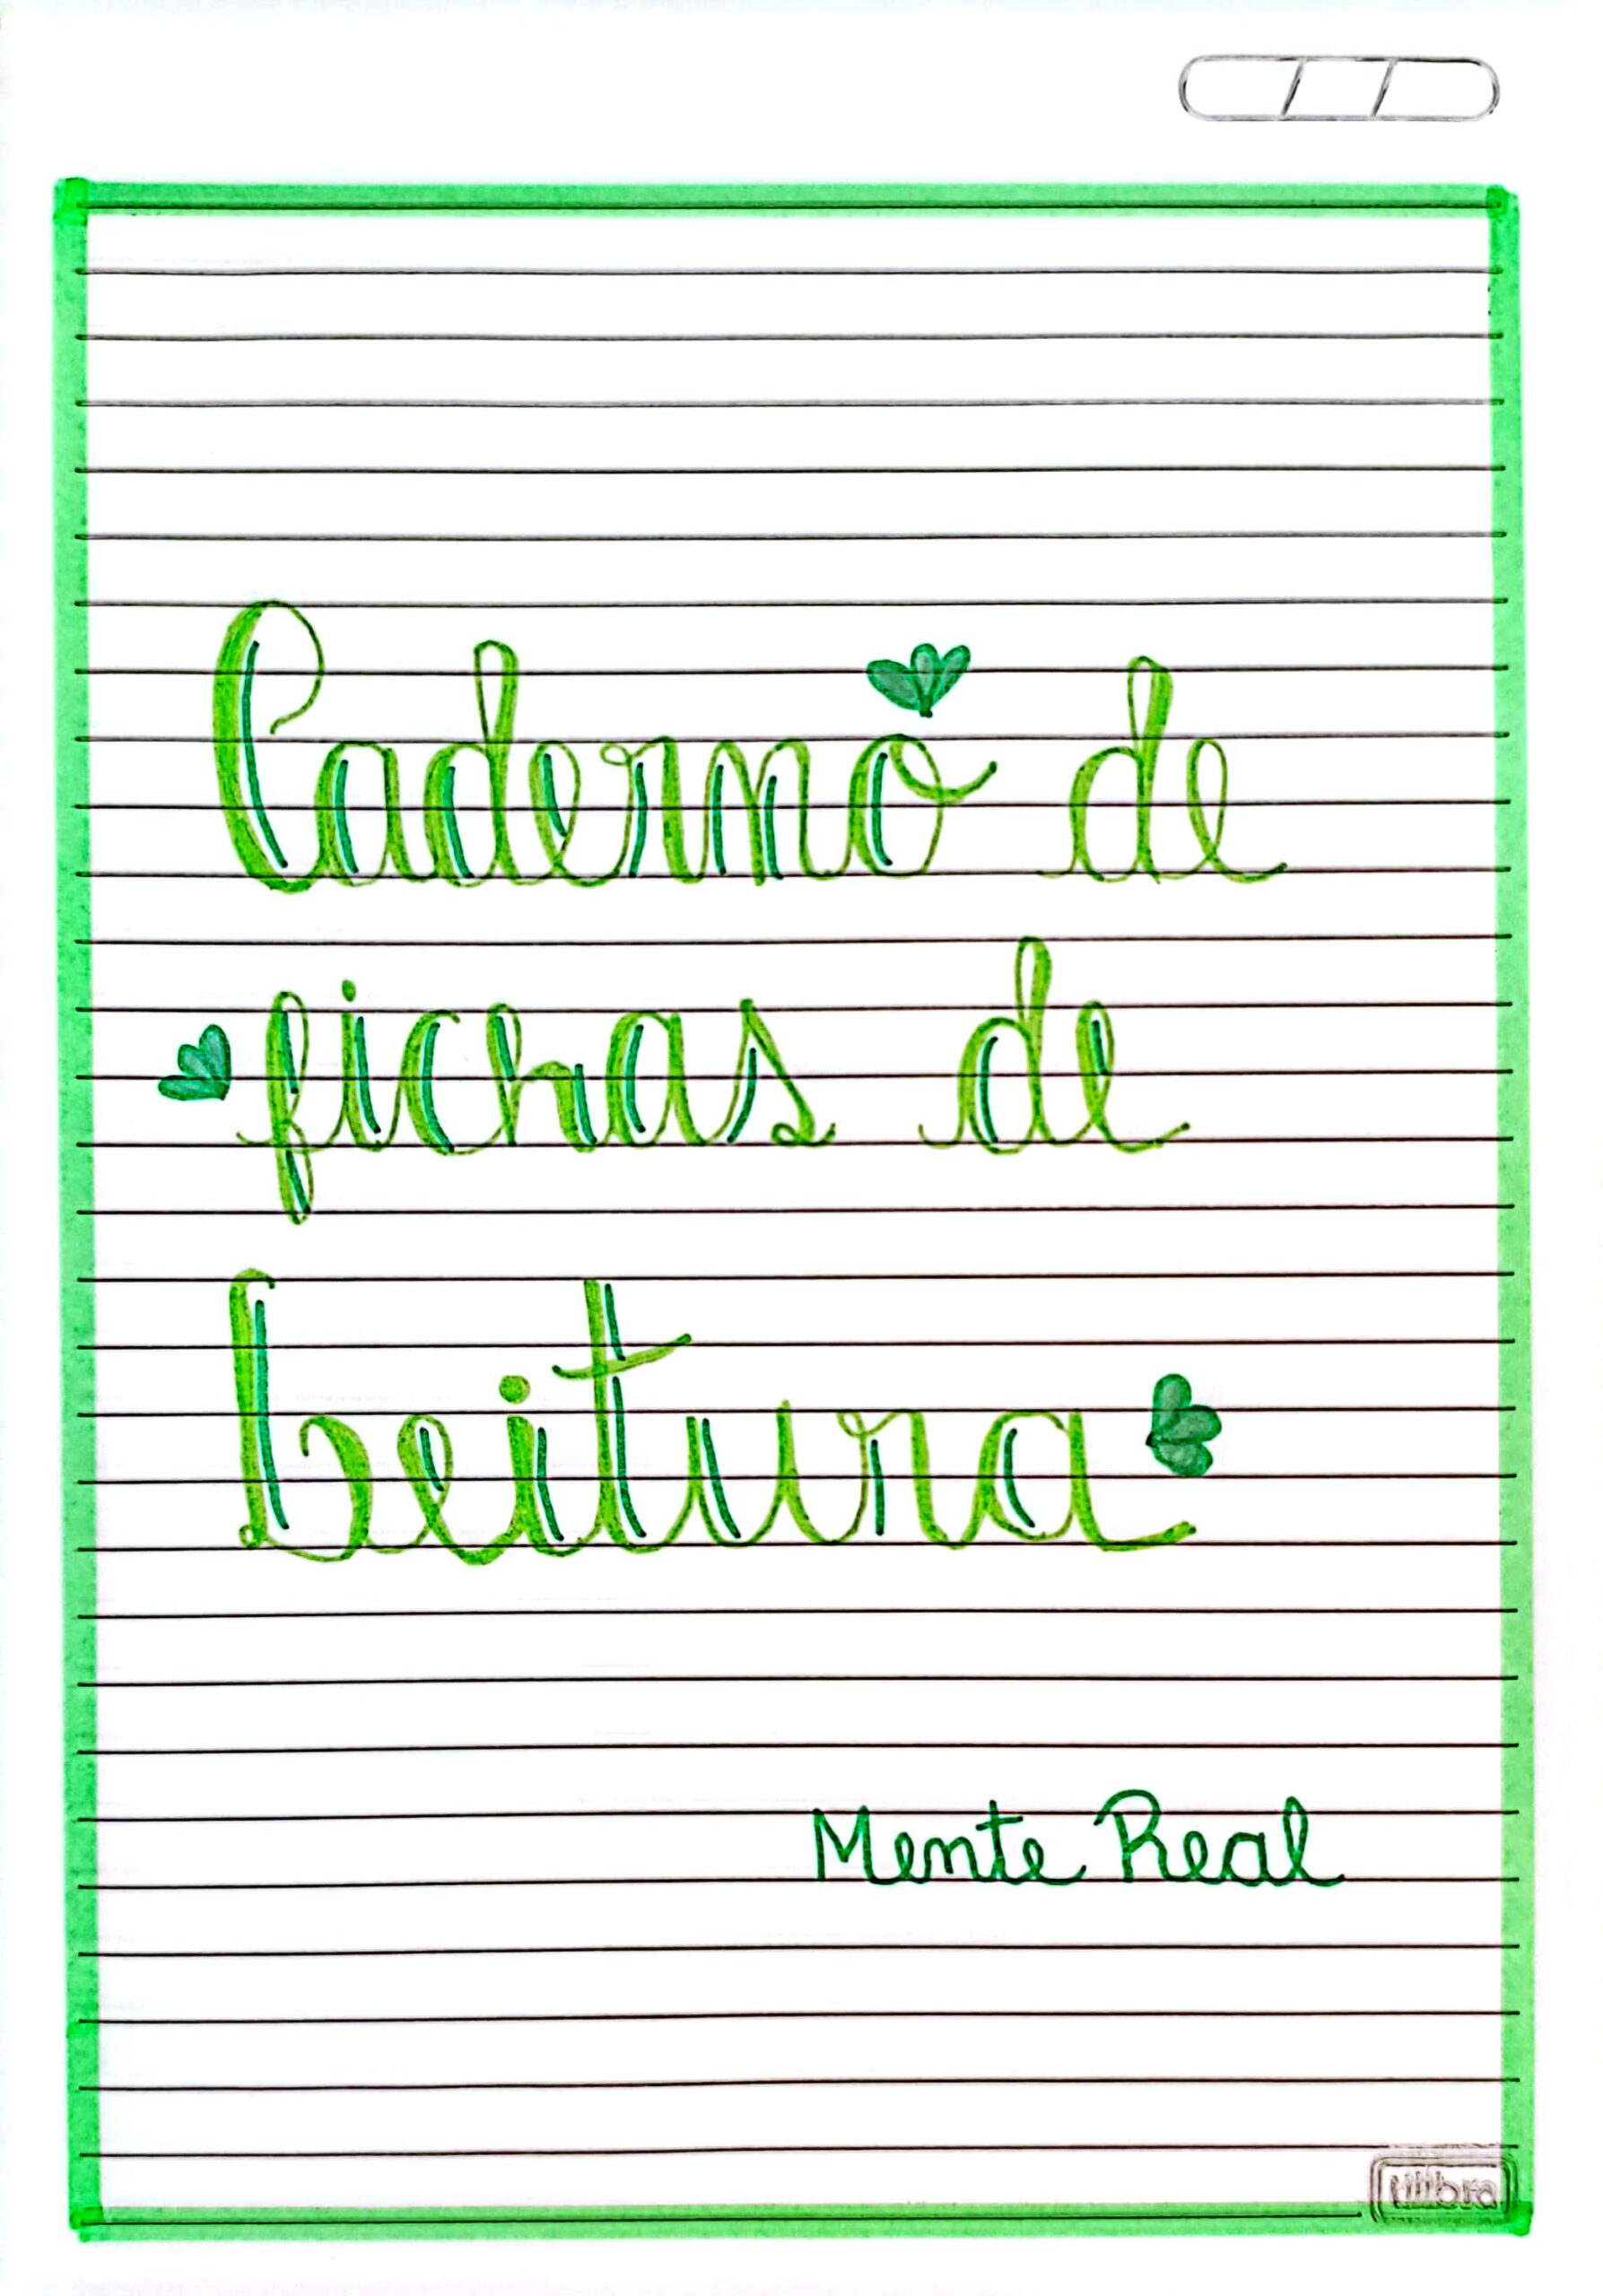 Caderno de
fichas de
Leitura
Mente Real
tilibra